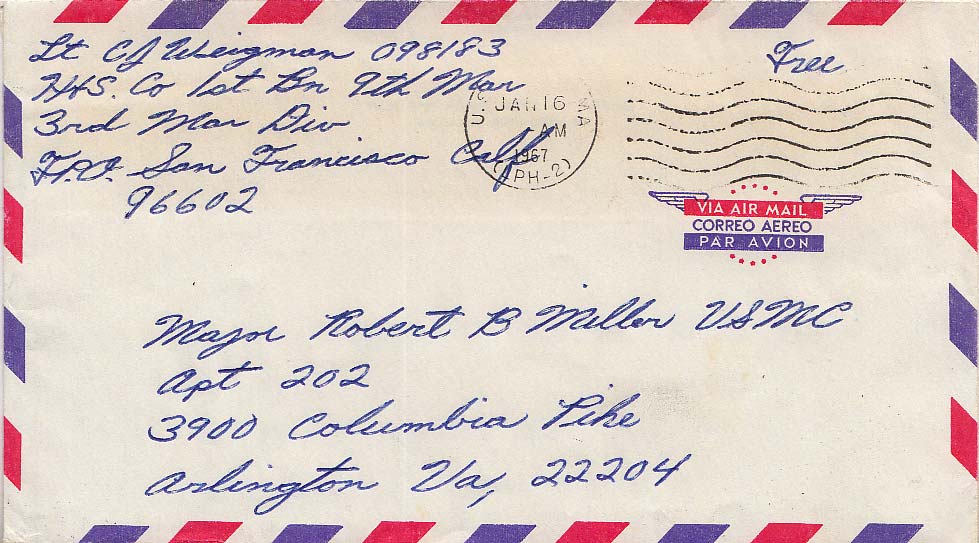 Lt CJ Weigman 098183
H&S. Co 1st Bn 9th Mar
3rd Mar Div
F.P.O. San Francisco Calif
96602
Free
U.S.
MA
JAN 16
AM
1967
(PH-2)
VIA AIR MAIL
CORREO AEREO
PAR AVION
Major Robert B Miller USMC
Apt 202
3900 Columbia Pike
Arlington Va, 22204